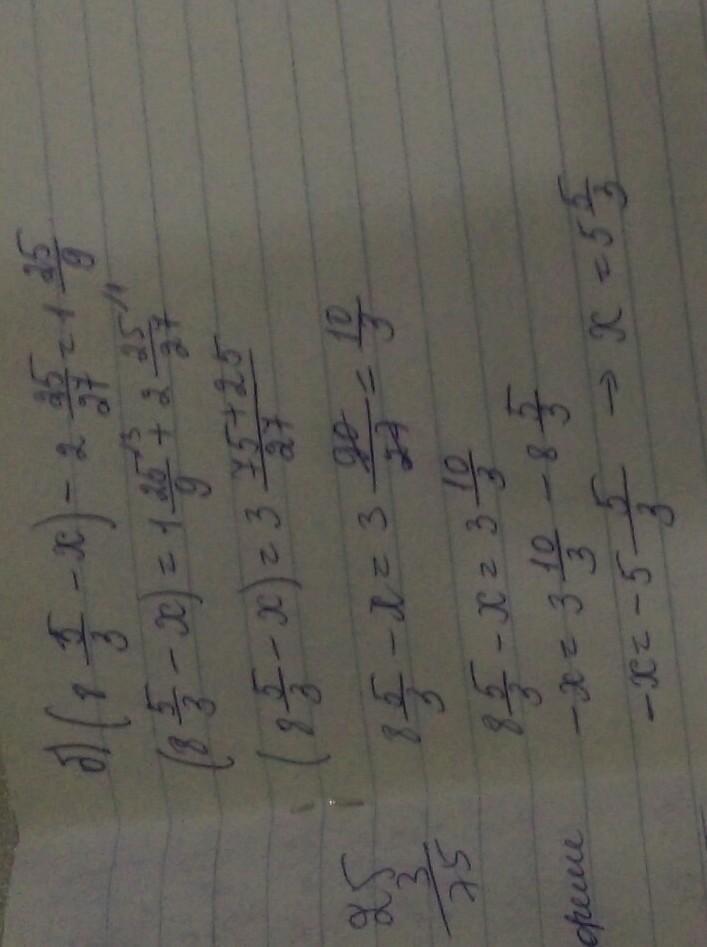 б) (8 5/3 - x) - 2 25/27 = 1 25/9
(8 5/3 - x) = 1 25/9 /3 + 2 25/27 /1
(8 5/3 - x) = 3 (75 + 25)/27
8 5/3 - x = 3 90/27 = 10/3
8 5/3 - x = 3 10/3
-x = 3 10/3 - 8 5/3
-x = -5 5/3 → x = 5 5/3
25
3
75